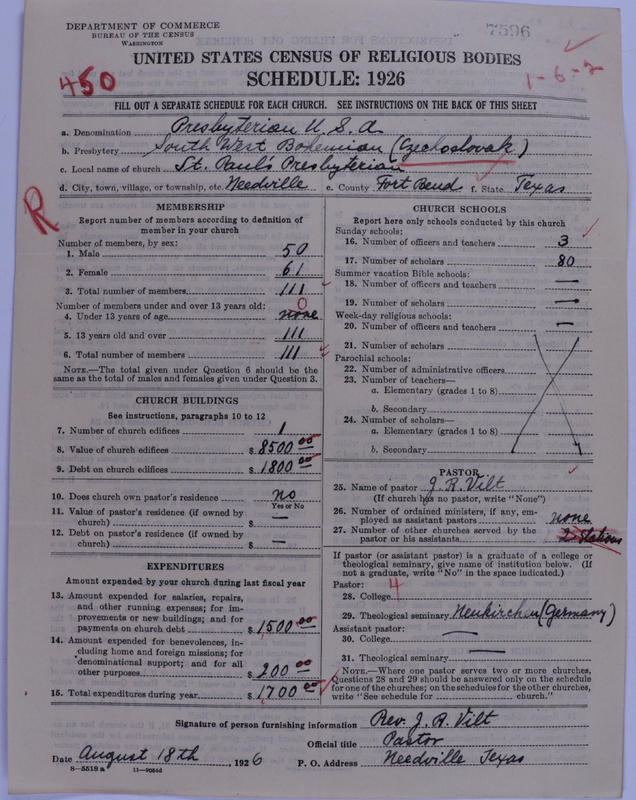 DEPARTMENT OF COMMERCE
BUREAU OF THE CENSUS
WASHINGTON
7596
UNITED STATES CENSUS OF RELIGIOUS BODIES
SCHEDULE: 1926
450
1-6-2
FILL OUT A SEPARATE SCHEDULE FOR EACH CHURCH. SEE INSTRUCTIONS ON THE BACK OF THIS SHEET
a. Denomination Presbyterian U. S. A.
b. Presbytery South West Bohemian (Czechoslovak)
c. Local name of church St. Paul's Presbyterian
d. City, town, village, or township, etc. Needville e. County Fort Bend f. State Texas
R
MEMBERSHIP
Report number of members according to definition of member in your church
Number of members, by sex:
1. Male 50
2. Female 61
3. Total number of members 111
Number of members under and over 13 years old:
0
4. Under 13 years of age none
5. 13 years old and over 111
6. Total number of members 111
NOTE.—The total given under Question 6 should be
same as the total of males and females given under Question 3.
CHURCH BUILDINGS
See instructions, paragraphs 10 to 12
7. Number of church edifices 1
8. Value of church edifices $ 8500 00
9. Debt on church edifices $ 1800 00
10. Does church own pastor's residence no
Yes or No
11. Value of pastor's residence (if owned by
church) $ —
12. Debt on pastor's residence (if owned by
church) $ —
EXPENDITURES
Amount expended by your church during last fiscal year
13. Amount expended for salaries, repairs,
and other running expenses; for im-
provements or new buildings; and for
payments on church debt $ 1500 00
14. Amount expended for benevolences, in-
cluding home and foreign missions; for
denominational support; and for all
other purposes $ 200 00
15. Total expenditures during year $ 1700 00
CHURCH SCHOOLS
Report here only schools conducted by this church
Sunday schools:
16. Number of officers and teachers 3
17. Number of scholars 80
Summer vacation Bible schools:
18. Number of officers and teachers —
19. Number of scholars —
Week-day religious schools:
20. Number of officers and teachers —
21. Number of scholars
Parochial schools:
22. Number of administrative officers
23. Number of teachers—
a. Elementary (grades 1 to 8)
b. Secondary
24. Number of scholars—
a. Elementary (grades 1 to 8)
b. Secondary
PASTOR
25. Name of pastor J. R. Vilt
(If church has no pastor, write "None")
26. Number of ordained ministers, if any, em-
ployed as assistant pastors none
27. Number of other churches served by the
pastor or his assistants 2 Stations
If pastor (or assistant pastor) is a graduate of a college or
theological seminary, give name of institution below. (If
not a graduate, write "No" in the space indicated.)
Pastor:
28. College 4
29. Theological seminary Neukirchen (Germany)
Assistant pastor:
30. College —
31. Theological seminary —
NOTE.—Where one pastor serves two or more churches,
Questions 28 and 29 should be answered only on the schedule
for one of the churches; on the schedules for the other churches,
write "See schedule for ........ church."
Signature of person furnishing information Rev. J. R. Vilt
Official title Pastor
Date August 18th, 1926 P. O. Address Needville Texas
8—5518a 11—9056d